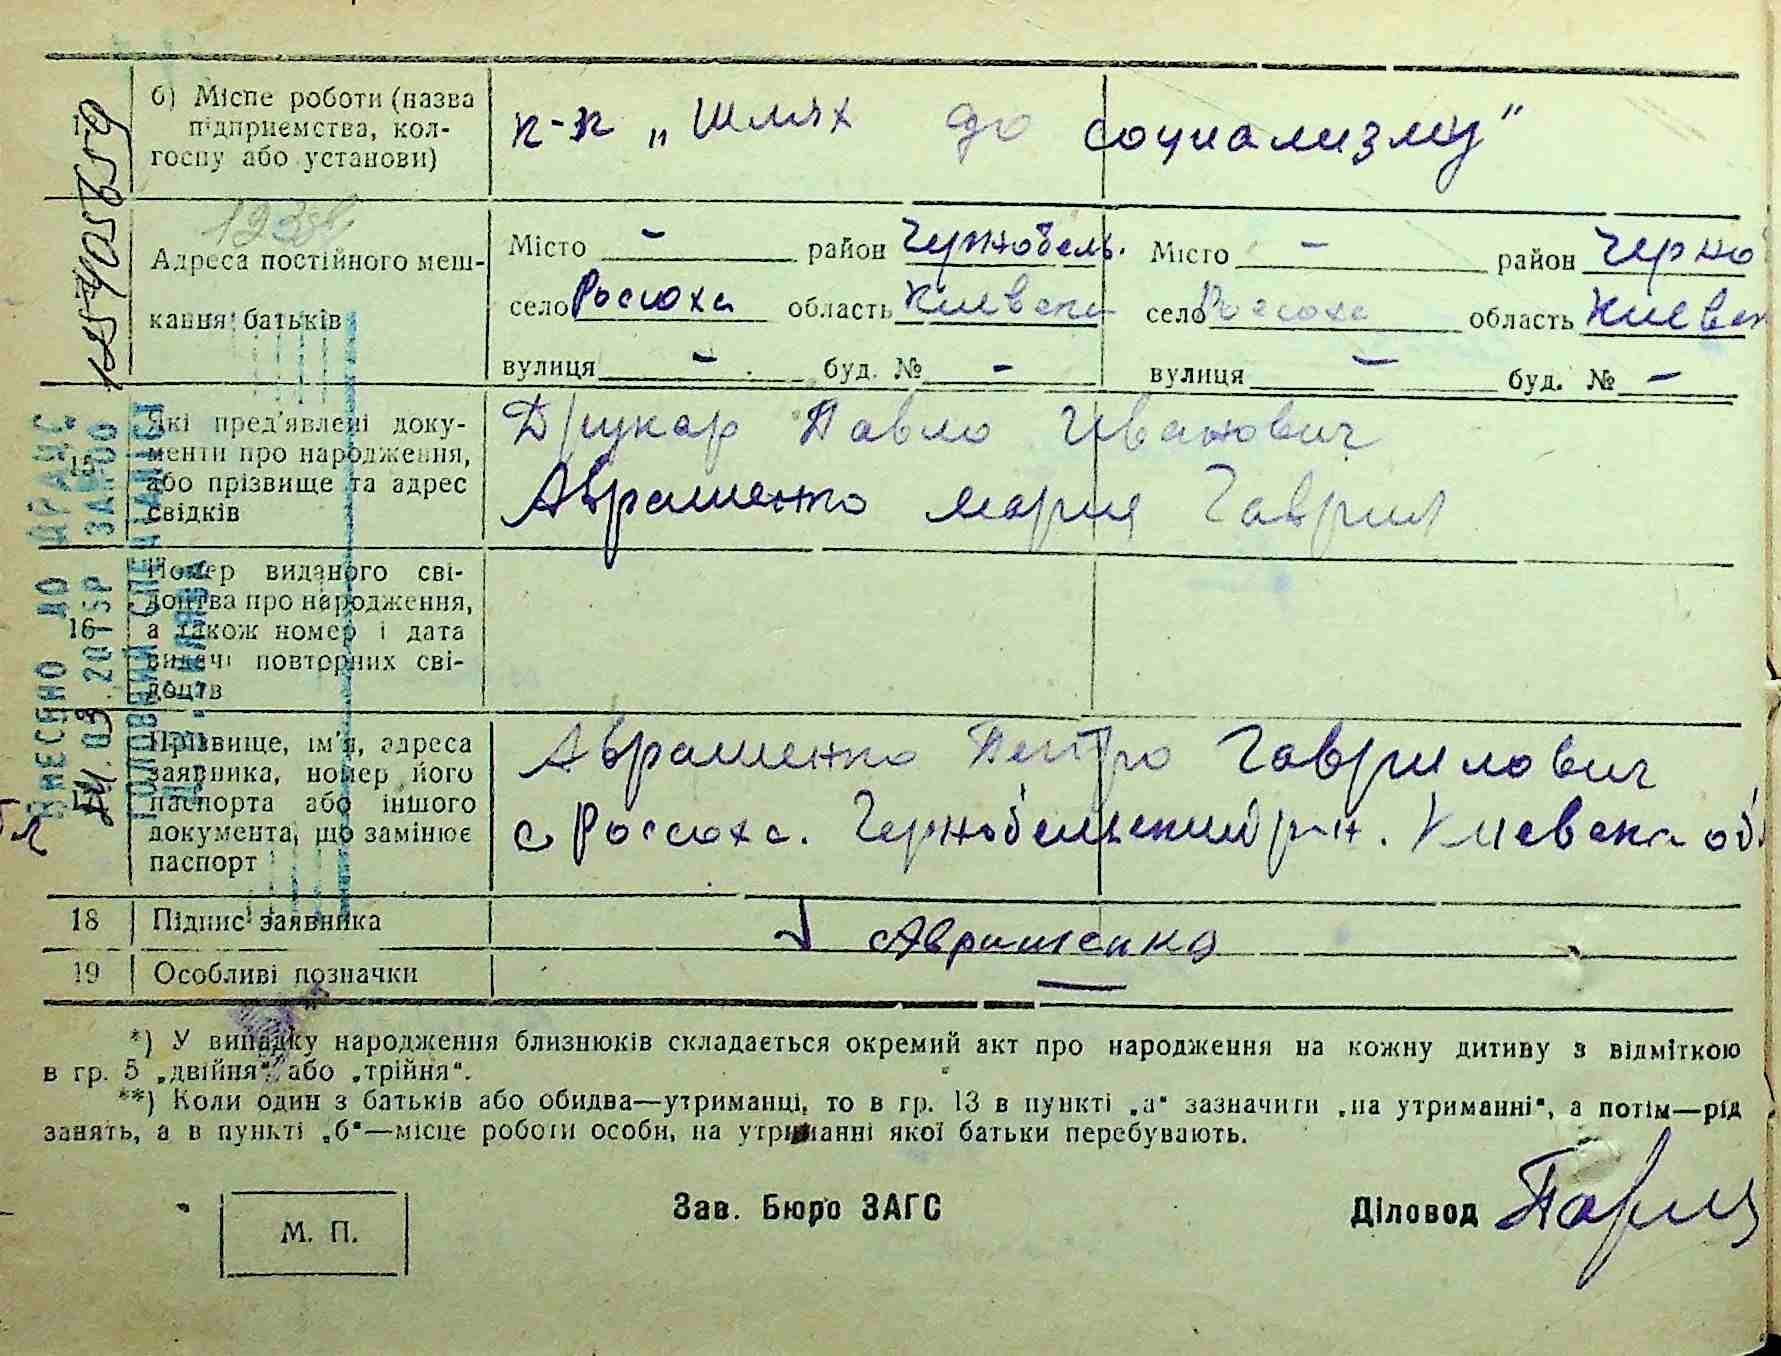 б) Місце роботи (назва
підприємства, кол-
госпу або установи)
к-п „Шлях до социализму"
Адреса постійного меш-
кання батьків
Місто - район Чернобель. Місто - район Черно
село Россоха область Киевска село Россоха область Киевск
вулиця - буд. № - вулиця - буд. № -
15
Які пред'явлені доку-
менти про народження,
або прізвище та адрес
свідків
Друкар Павло Иванович
Авраменко Мария Гаврил
16
Номер виданого сві-
доцтва про народження,
а також номер і дата
видачі повторних сві-
доцтв
Прізвище, ім'я, адреса
заявника, номер його
паспорта або іншого
документа, що замінює
паспорт
Авраменко Петро Гаврилович
с Россоха. Чернобельский р-н. Киевска об
18 Підпис заявника
Авраменко
19 Особливі позначки —
ВНЕСЕНО ДО ДРАЦС
.03.2015Р ЗА №00
ГОЛОВНИЙ СПЕЦІАЛІСТ
*) У випадку народження близнюків складається окремий акт про народження на кожну дитину з відміткою
в гр. 5 „двійня" або „трійня".
**) Коли один з батьків або обидва—утриманці, то в гр. 13 в пункті „а" зазначити „на утриманні", а потім—рід
занять, а в пункті „б"—місце роботи особи, на утриманні якої батьки перебувають.
М. П.
Зав. Бюро ЗАГС
Діловод